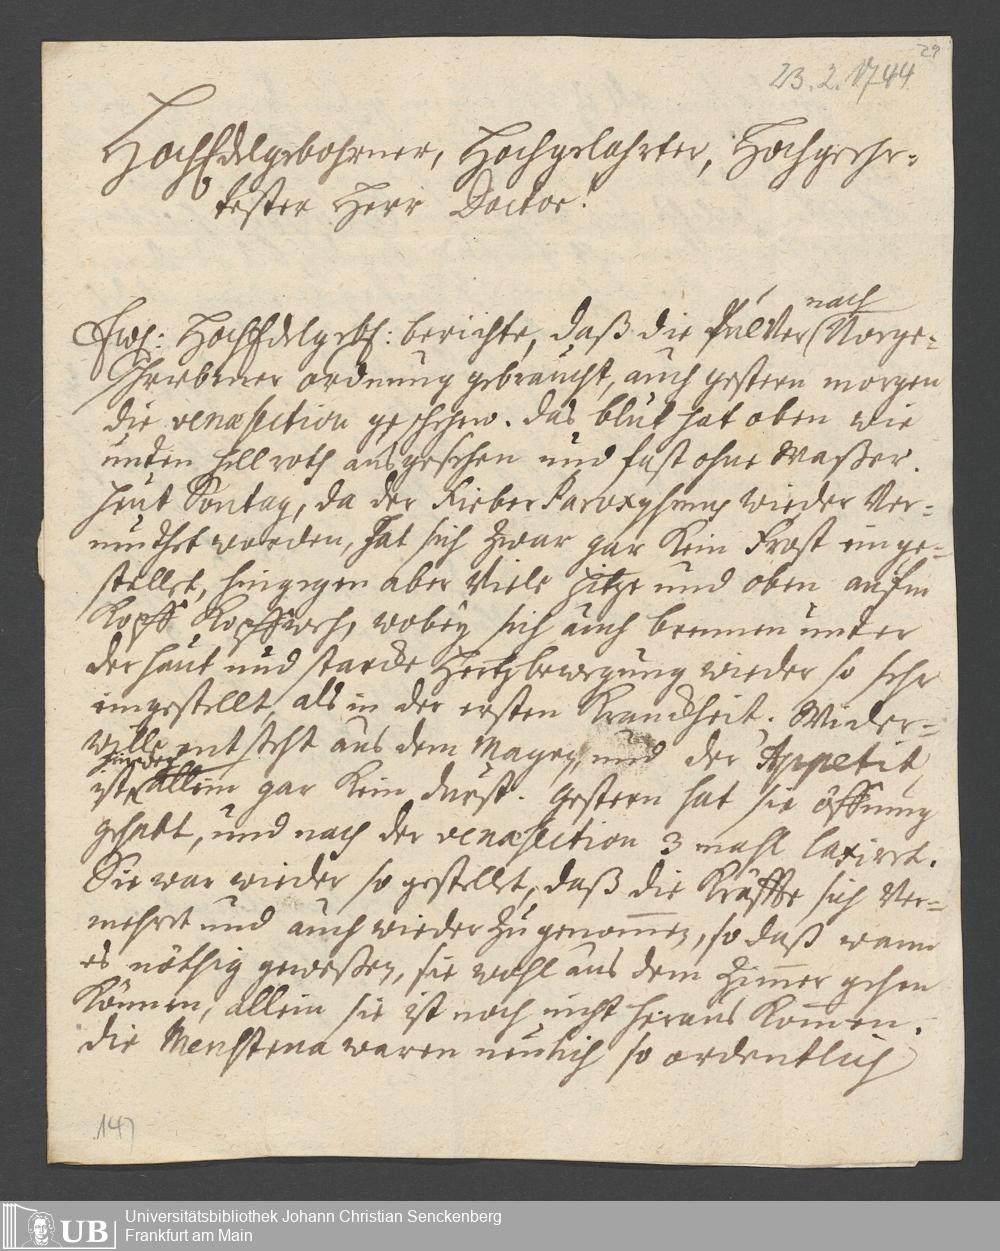 29
23. 2. 1744
HochEdelgebohrner, Hochgelahrter, Hochgeehr-
tester Herr Doctor!
Ew: HochEdelgeb: berichte, daß die Pulver nach Vorge-
schriebener ordnung gebraucht, auch gestern morgen
die venæsection geschehen. das blut hat oben wie
unten hell roth ausgesehen und fast ohne Waßer.
heut Sontag, da der Fieber Paroxysmus wieder Ver-
muthet worden, hat sich zwar gar Kein Frost einge-
stellet, hingegen aber Viele Hitze und oben aufm
Kopff Kopffweh, wobey sich auch brennen unter
der haut und starcke Hertzbewegung wieder so sehr
eingestellt, als in der ersten Kranckheit. Wieder-
wille entsteht aus dem Magen, und der Appetit
ist allein gar Kein durst. gestern hat sie öffnung
gehabt, und nach der venæsection 3 mahl laxiret.
Sie war wieder so gestellet, daß die Kräffte sich Ver-
mehret und auch wieder zu genomen, so daß wann
es nöthig geweßen, sie wohl aus dem Zimer gehen
Können, allein sie ist noch nicht heraus Komen.
die Menstrua waren neulich so ordentlich
147
UB
Universitätsbibliothek Johann Christian Senckenberg
Frankfurt am Main